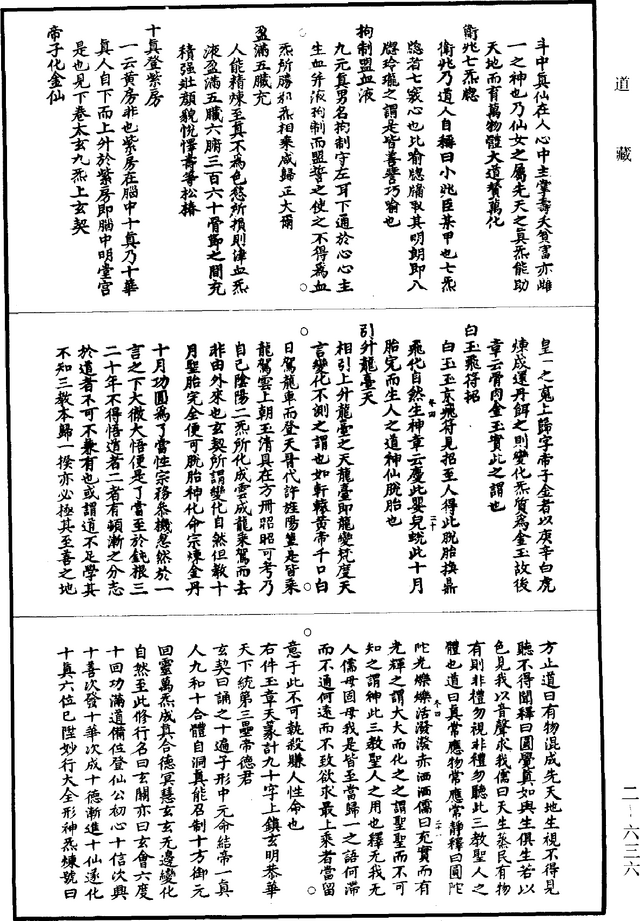 道藏
斗中真仙在人心中主掌壽夭貧富亦雌
一之神也乃仙女之屬先天之真炁能助
天地而育萬物體大道贊萬化
衛兆七炁牕
衛兆乃道人自稱曰小兆臣某甲也七炁
牕若七竅心也比喻牕牖取其明朗即八
牕玲瓏之謂是皆善譬巧喻也
拘制盟血液
九元真男名拘制字左耳下通於心心主
生血并液拘制而盟誓之使之不得為血
炁所勝如炁相乘咸歸正大爾
盈滿五臟充
人能精煉至真不為色慾所損則津血炁
液盈滿五臟六腑三百六十骨節之間充
積強壯顏貌悅懌壽等松椿
十真登紫房
一云黃房非也紫房在腦中十真乃十華
真人自下而上升於紫房即腦中明堂宮
是也見下卷太玄九炁上玄契
帝子化金仙
皇一之鬼上歸字帝子金者以庚辛白虎
煉成還丹餌之則變化炁質為金玉故後
章云骨肉金玉實此之謂也
白玉飛符招
白玉玉京飛符見招至人得此脫胎換鼎
飛化自然生神章云慶此嬰兒蛻此十月
胎完而生人之道神仙脫胎也
引升龍臺天
相引上升龍臺之天龍臺即龍變梵度天
言變化不測之謂也如軒轅黃帝千口白
日駕龍車而登天晉代許旌陽豈是皆乘
龍駕雲上朝玉清具在方冊昭昭可考乃
自己陰陽二炁所化成雲成龍乘駕而去
非由外來也玄契所謂變化自然但數十
月聖胎完全便可脫胎神化命宗煉金丹
十月功圓為了當性宗移參機忽然於一
言之下大徹大悟便是了當至於鈍根三
二十年不得悟道者二者有頓漸之分志
於道者不可不兼有也或謂道不足學其
不知三教本歸一揆亦必極其至善之地
方止道曰有物混成先天地生視不得見
聽不得聞釋曰圓覺真如與生俱生若以
色見我以音聲求我儒曰天生蒸民有物
有則非禮勿視非禮勿聽此三教聖人之
體也道曰真常應物常應常靜釋曰圓陀
陀光爍爍活潑潑赤洒洒儒曰充實而有
光輝之謂大大而化之之謂聖聖而不可
知之謂神此三教聖人之用也釋无我无
人儒毋固毋我是皆至當歸一之語何滯
而不通何遠而不致欲求最上乘者當留
意于此不可執殺賺人性命也
右件玉章天篆計九十字上鎮玄明恭華
天下統第三壘帝德君
玄契曰誦之十過子形中元命結帝一真
人九和十合體自洞真能召制十方御元
回靈萬炁成真合德冥慧玄玄无邊變化
自然至此修行名曰玄關亦曰玄會六度
十回功滿道備位登仙公初心十信次興
十善次發十華次成十德漸進十仙遂化
十真六位已陞妙行大全形神炁煉號曰
二一六三六